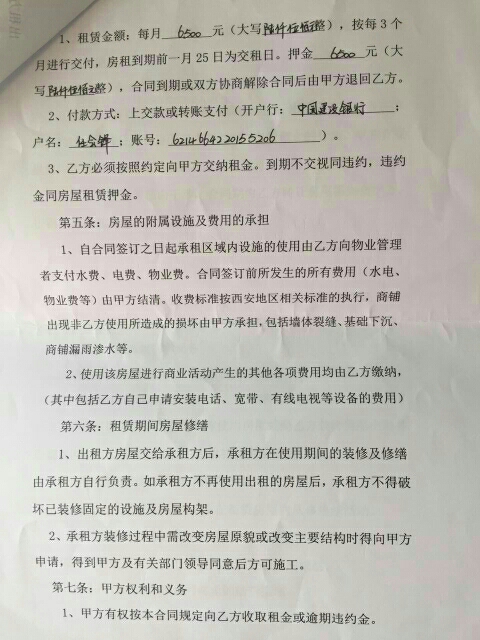 1、租赁金额：每月 6500 元（大写陆仟伍佰元整），按每3个
月进行交付，房租到期前一月25日为交租日。押金 6500 元（大
写陆仟伍佰元整），合同到期或双方协商解除合同后由甲方退回乙方。
2、付款方式：上交款或转账支付（开户行：中国建设银行；
户名：任会锋；账号：6214664220155206）。
3、乙方必须按照约定向甲方交纳租金。到期不交视同违约，违约
金同房屋租赁押金。
第五条：房屋的附属设施及费用的承担
1、自合同签订之日起承租区域内设施的使用由乙方向物业管理
者支付水费、电费、物业费。合同签订前所发生的所有费用（水电、
物业费等）由甲方结清。收费标准按西安地区相关标准的执行，商铺
出现非乙方使用所造成的损坏由甲方承担，包括墙体裂缝、基础下沉、
商铺漏雨渗水等。
2、使用该房屋进行商业活动产生的其他各项费用均由乙方缴纳，
（其中包括乙方自己申请安装电话、宽带、有线电视等设备的费用）
第六条：租赁期间房屋修缮
1、出租方房屋交给承租方后，承租方在使用期间的装修及修缮
由承租方自行负责。如承租方不再使用出租的房屋后，承租方不得破
坏已装修固定的设施及房屋构架。
2、承租方装修过程中需改变房屋原貌或改变主要结构时得向甲方
申请，得到甲方及有关部门领导同意后方可施工。
第七条：甲方权利和义务
1、甲方有权按本合同规定向乙方收取租金或逾期违约金。